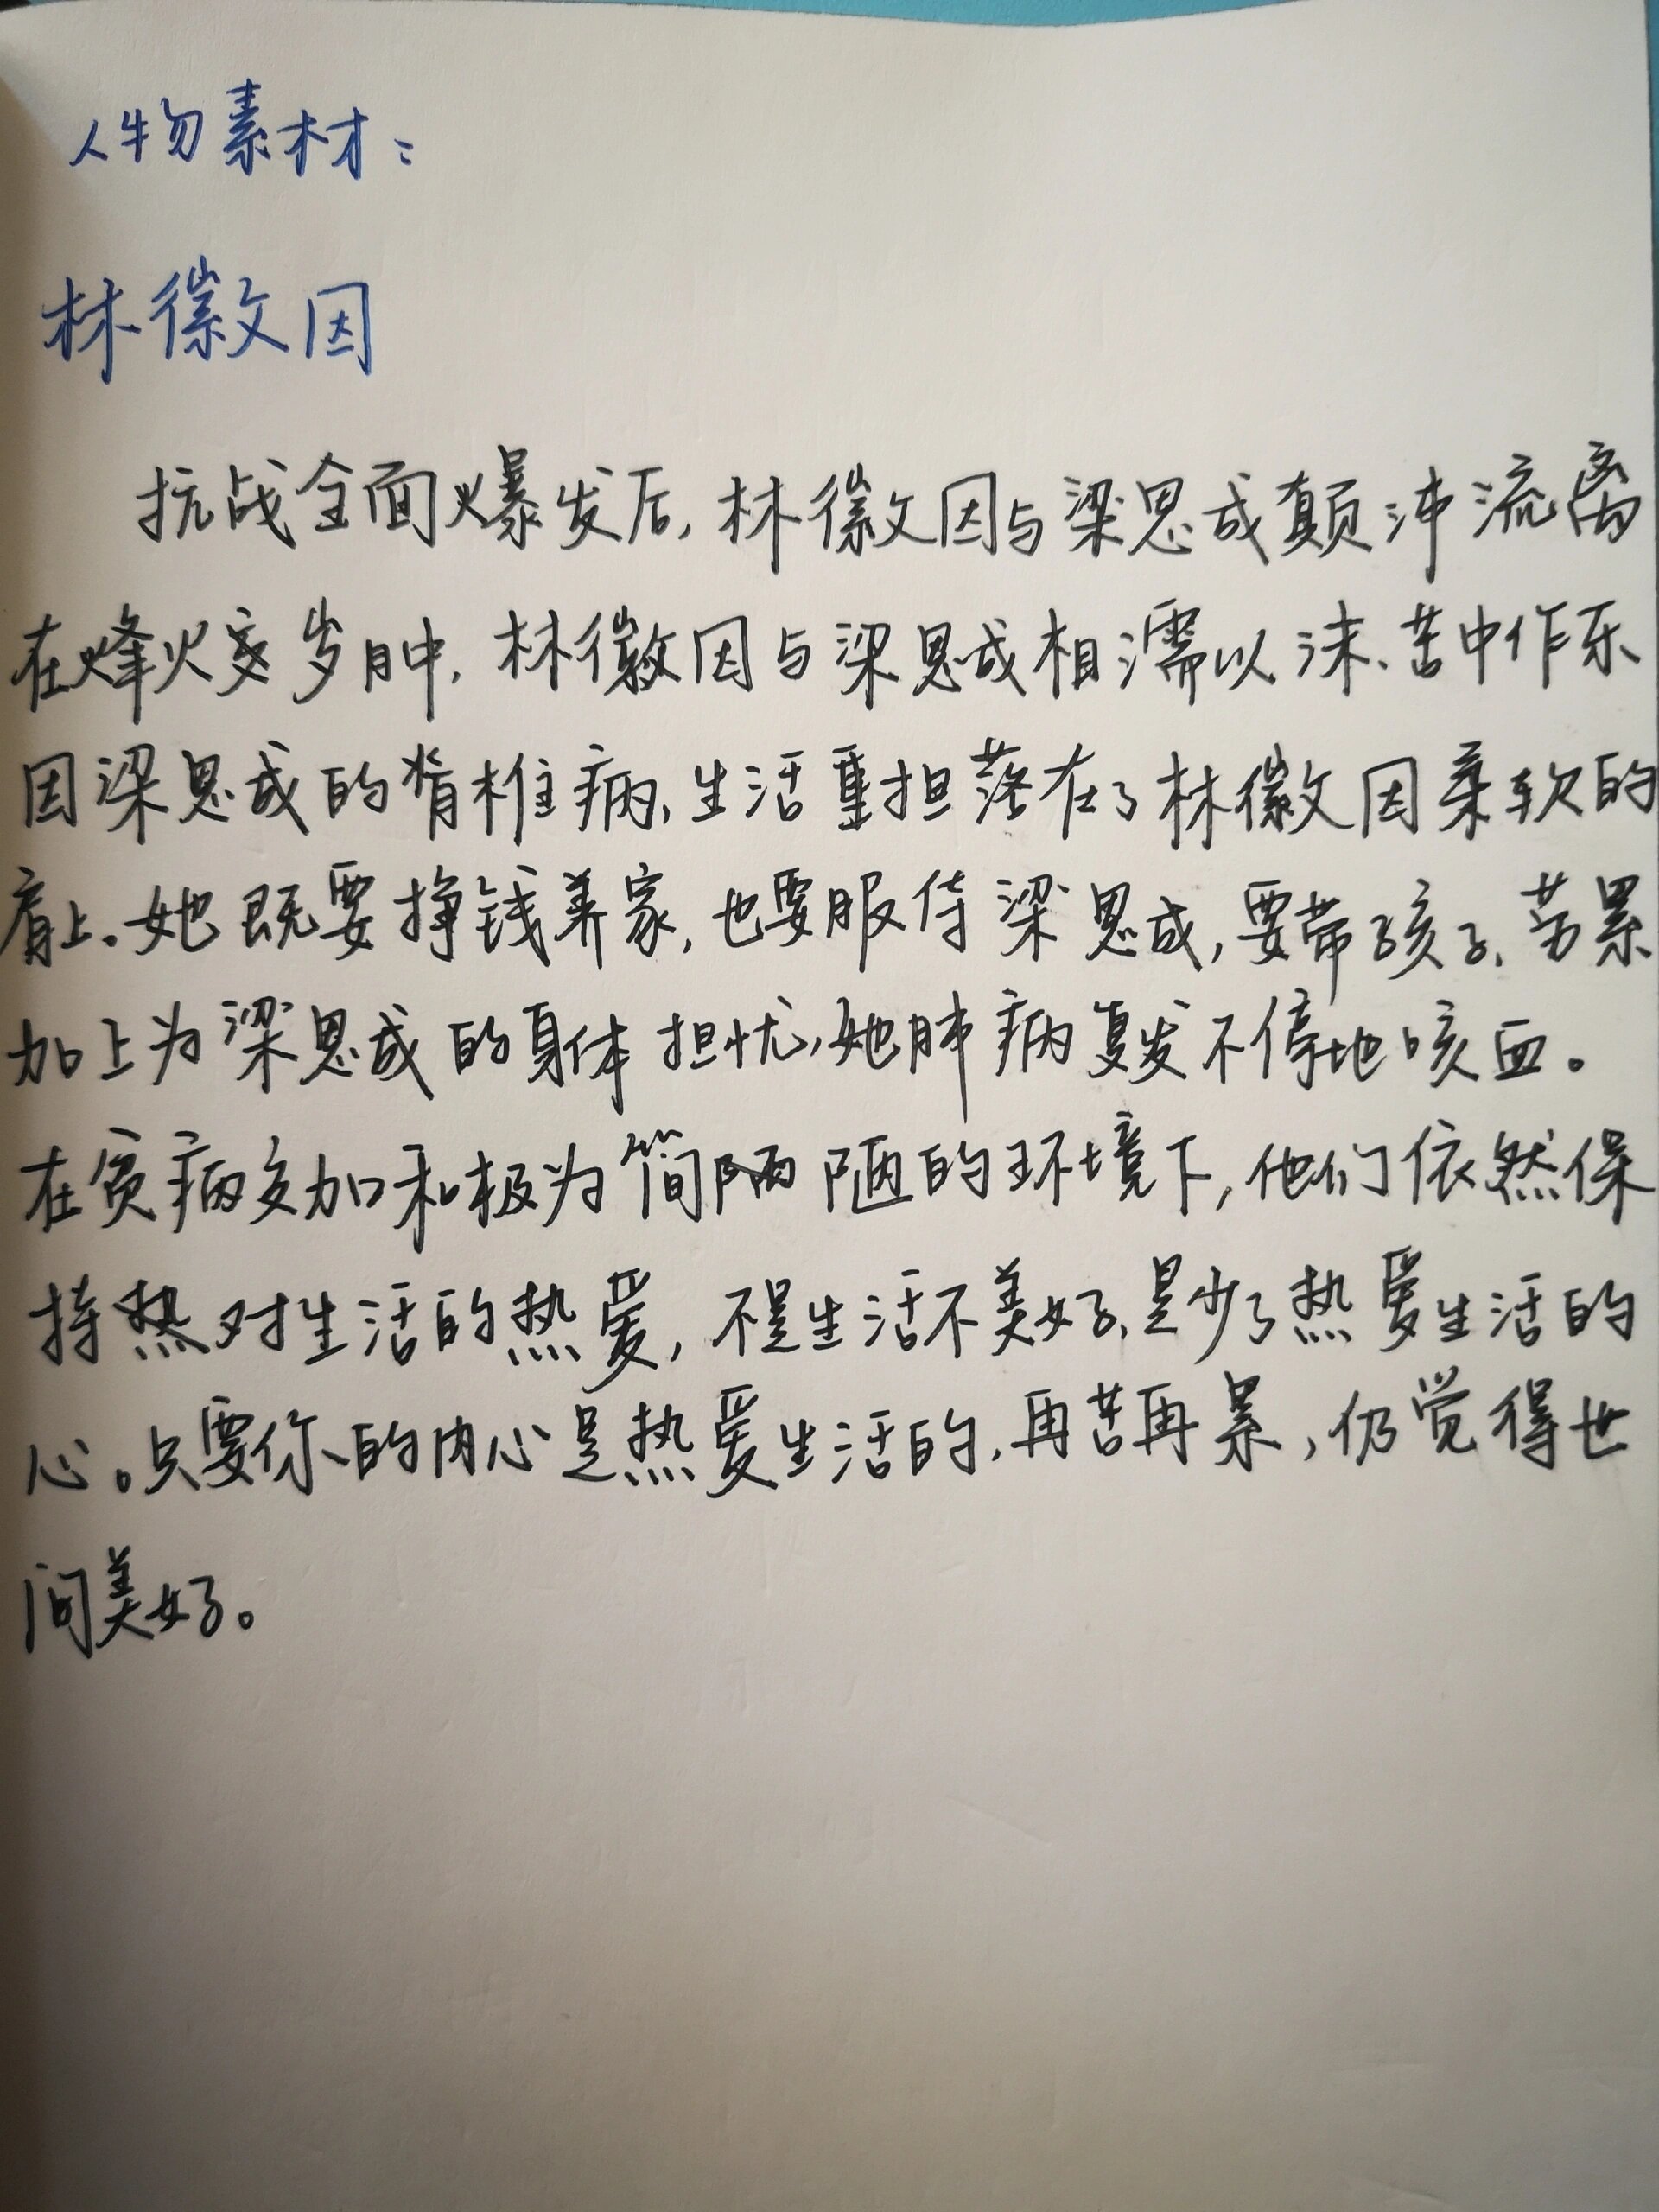 人物素材：
林徽因
抗战全面爆发后，林徽因与梁思成颠沛流离
在烽火岁月中，林徽因与梁思成相濡以沫、苦中作乐
因梁思成的脊椎病，生活重担落在了林徽因柔软的
肩上。她既要挣钱养家，也要服侍梁思成，要带孩子，劳累
加上为梁思成的身体担忧，她肺病复发不停地咳血。
在贫病交加和极为简陋陋的环境下，他们依然保
持热对生活的热爱，不是生活不美好，是少了热爱生活的
心。只要你的内心是热爱生活的，再苦再累，仍觉得世
间美好。